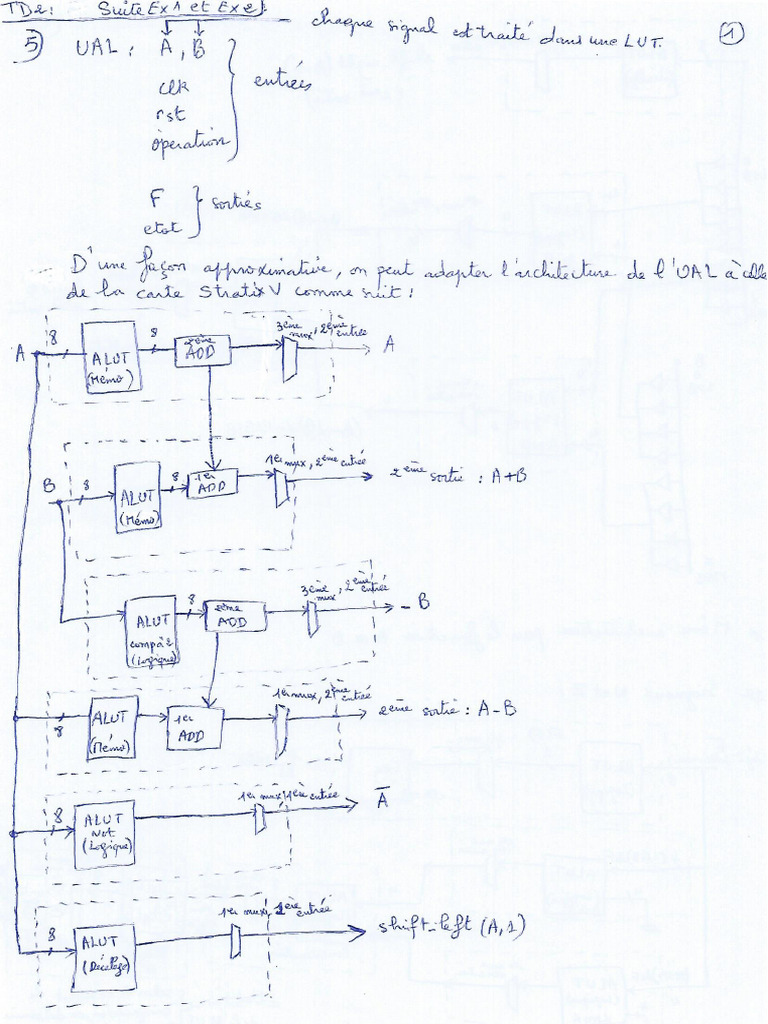 TD2: Suite Ex1 et Ex2:
chaque signal est traité dans une LUT.
1
5) UAL: A, B
clk
rst
operation
entrées
F
etat
sorties
D'une façon approximative, on peut adapter l'architecture de l'UAL à celle
de la carte Stratix V comme suit:
A 8 ALUT (Mémo) 8 2ème ADD 3ème mux, 2ème entrée A
B 8 ALUT (Mémo) 8 1er ADD 1er mux, 2ème entrée 2ème sortie: A+B
ALUT compà2 (Logique) 8 2ème ADD 3ème mux, 2ème entrée - B
8 ALUT (Mémo) 1er ADD 1er mux, 2ème entrée 2ème sortie: A-B
8 ALUT Not (Logique) 1er mux, 1ère entrée A̅
8 ALUT (Décalage) 1er mux, entrée shift-left (A,1)